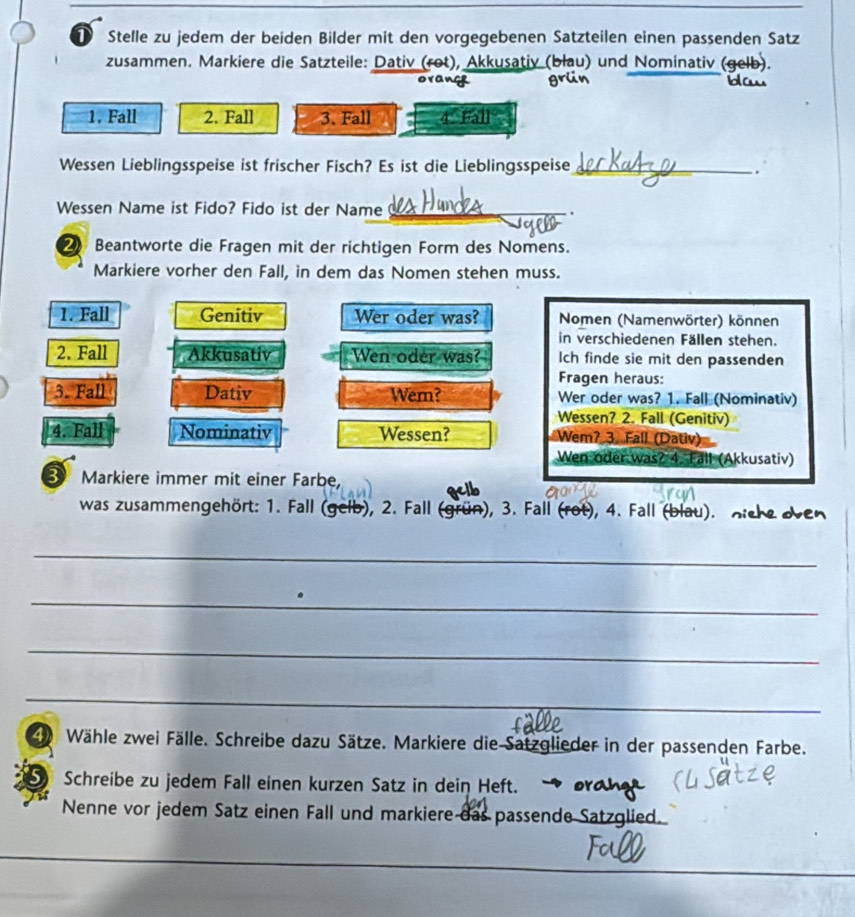 1 Stelle zu jedem der beiden Bilder mit den vorgegebenen Satzteilen einen passenden Satz
zusammen. Markiere die Satzteile: Dativ (rot), Akkusativ (blau) und Nominativ (gelb).
orange grün blau
1. Fall 2. Fall 3. Fall 4. Fall
Wessen Lieblingsspeise ist frischer Fisch? Es ist die Lieblingsspeise der Katze.
Wessen Name ist Fido? Fido ist der Name des Hundes.
gelb
2 Beantworte die Fragen mit der richtigen Form des Nomens.
Markiere vorher den Fall, in dem das Nomen stehen muss.
1. Fall Genitiv Wer oder was?
2. Fall Akkusativ Wen oder was?
3. Fall Dativ Wem?
4. Fall Nominativ Wessen?
Nomen (Namenwörter) können
in verschiedenen Fällen stehen.
Ich finde sie mit den passenden
Fragen heraus:
Wer oder was? 1. Fall (Nominativ)
Wessen? 2. Fall (Genitiv)
Wem? 3. Fall (Dativ)
Wen oder was? 4. Fall (Akkusativ)
3 Markiere immer mit einer Farbe,
(blau) gelb orange grün
was zusammengehört: 1. Fall (gelb), 2. Fall (grün), 3. Fall (rot), 4. Fall (blau). siehe oben
fälle
4 Wähle zwei Fälle. Schreibe dazu Sätze. Markiere die Satzglieder in der passenden Farbe.
5 Schreibe zu jedem Fall einen kurzen Satz in dein Heft. → orange (4 Sätze
den
Nenne vor jedem Satz einen Fall und markiere das passende Satzglied.
Fall